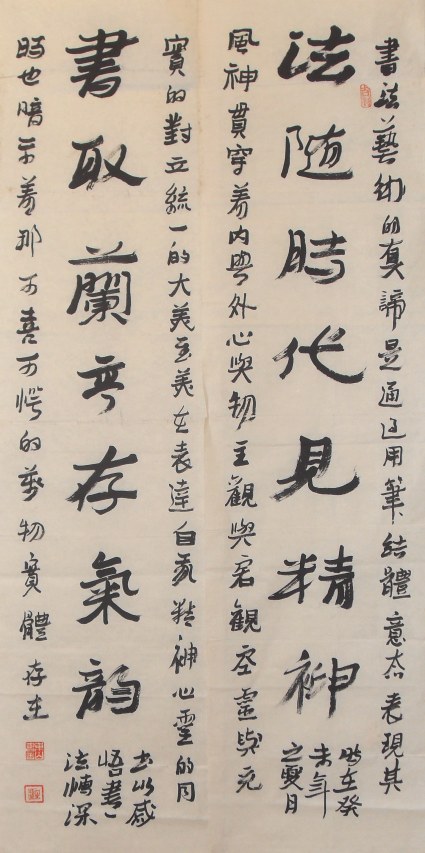 書法藝術的真諦是通過用筆結體意態表現其
法随時代見精神
時在癸
未年
之夏月
風神貫穿着内與外心與物主觀與客觀空靈與充
實的對立統一的大美至美在表達自我精神心靈的同
書取蘭亭存氣韵
書以感
悟書
法情深
時也暗示着那可喜可愕的萬物實體存在